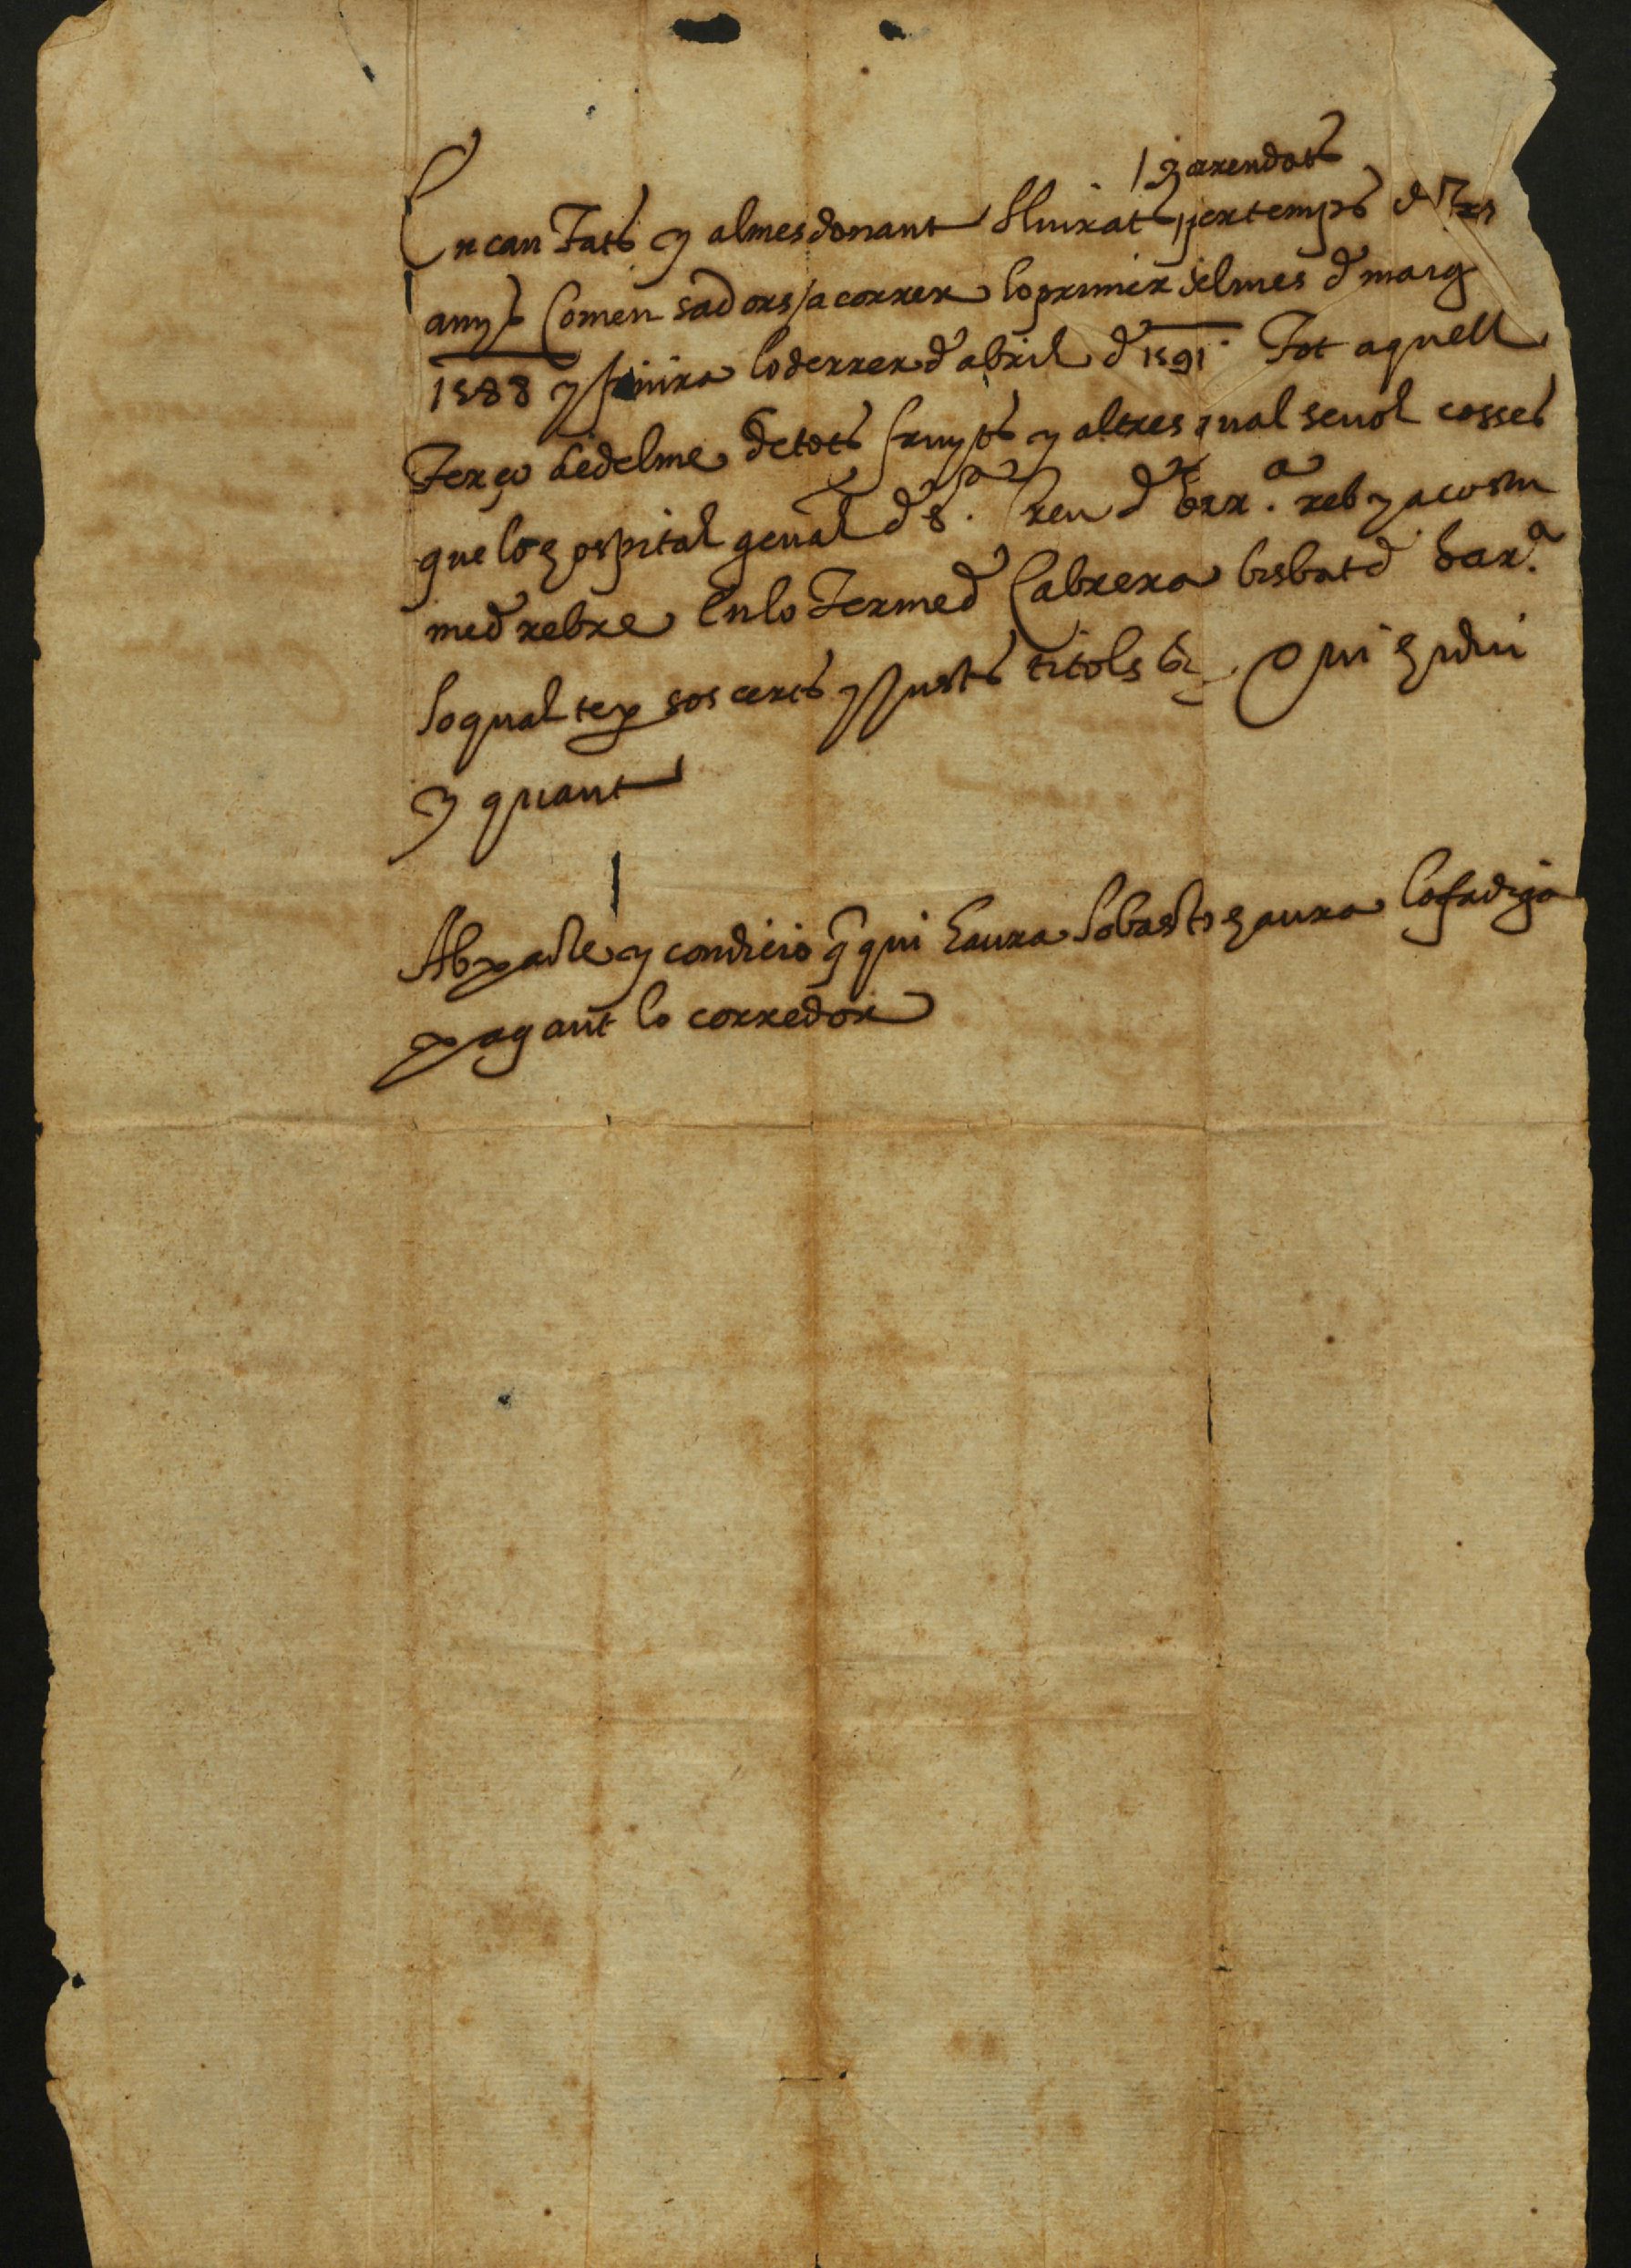 y arrendats
Encantats y al mes donant lliurats per temps de tres
anys comensadors a correr lo primer del mes de maig
1588 y finira lo derrer de abril de 1591 Tot aquell
terç de delme de tots fruyts y altres qual sevol cosses
que lo hospital genal de Sta. Creu de Barna. reb y acostu
me de rebre en lo terme de Cabrera bisbat de Bara.
lo qual te per sos certs y justs titols &c. Qui hi diu
y quant
Ab pacte y condicio que qui haura lo bastó haura la fadiga
pagant lo corredor